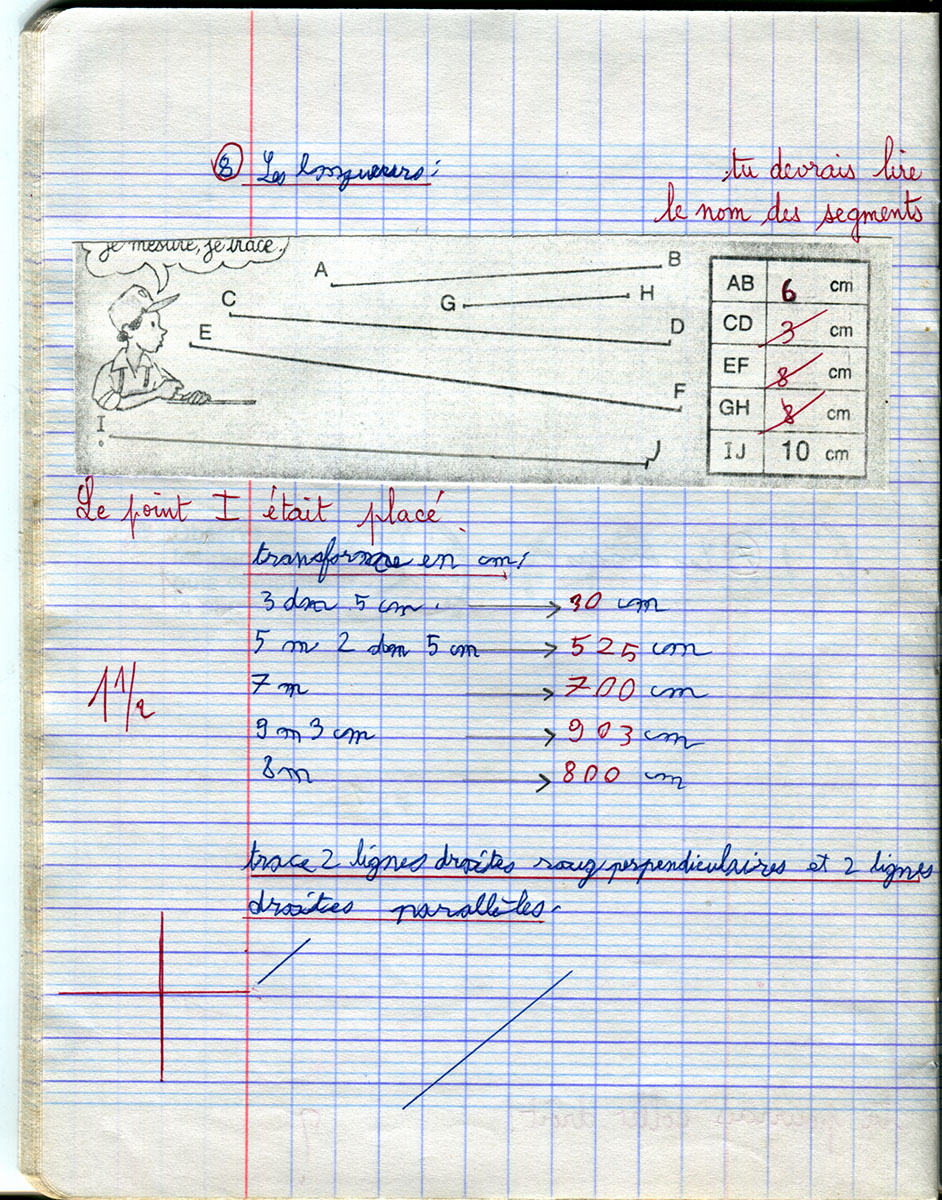 8 Les longueurs :
tu devrais lire
le nom des segments
je mesure, je trace
A B
G H
C D
E F
I J
AB 6 cm
CD 3 cm
EF 8 cm
GH 8 cm
IJ 10 cm
Le point I était placé.
transforme en cm :
3 dm 5 cm → 30 cm
5 m 2 dm 5 cm → 525 cm
7 m → 700 cm
1 1/2
9 m 3 cm → 903 cm
8 m → 800 cm
trace 2 lignes droites roug perpendiculaires et 2 lignes
droites parallèles.